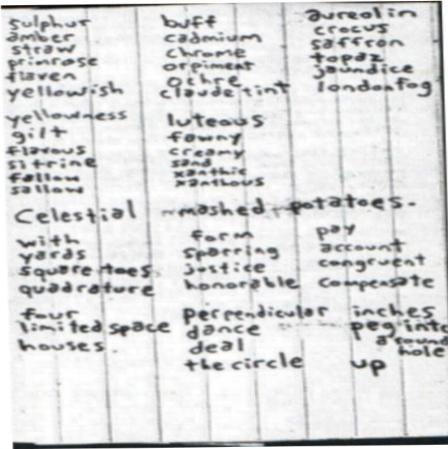 sulphur
amber
straw
primrose
flaxen
yellowish
buff
cadmium
chrome
orpiment
ochre
claude tint
aureolin
crocus
saffron
topaz
jaundice
london fog
yellowness
gilt
flavous
citrine
fallow
sallow
luteous
tawny
creamy
sand
xanthic
xanthous
Celestial mashed potatoes.
with
yards
square toes
quadrature
form
sparring
justice
honorable
pay
account
congruent
compensate
four
limited space
houses
perpendicular
dance
deal
the circle
inches
peg into
a round
hole
up